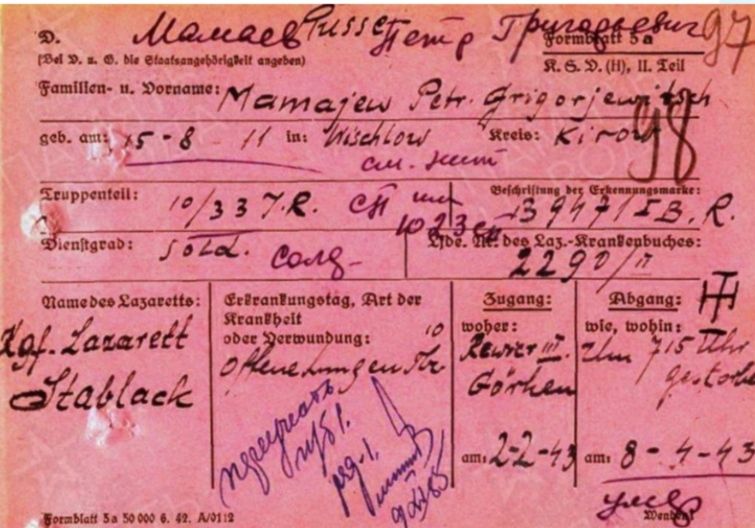 D. Мамаев Russe Петр Григорьевич 97
(Bei D. u. G. die Staatsangehörigkeit angeben) Formblatt 5a
K. S. D. (H), II. Teil
Familien- u. Vorname: Mamajew Petr. Grigorjewitsch
geb. am: 15-8-11 in: Wischlow Kreis: Kirow 98
Truppenteil: 10/337 J.R. Beschriftung der Erkennungsmarke:
39471 I B. R.
1023 сп
Dienstgrad: Sold. солд- Lfde. Nr. des Laz.-Krankenbuches:
2290/II
Name des Lazaretts: Erkrankungstag, Art der Zugang: Abgang:
Krankheit woher: wie, wohin:
Kgf. Lazarett oder Verwundung: Revier III. Um 715 Uhr
Stablack Offene Lungen Tbc Görken gestorben
am: 2-2-43 am: 8-4-43
умер
Formblatt 5a 50 000 6. 42. A/0112 Wenden!